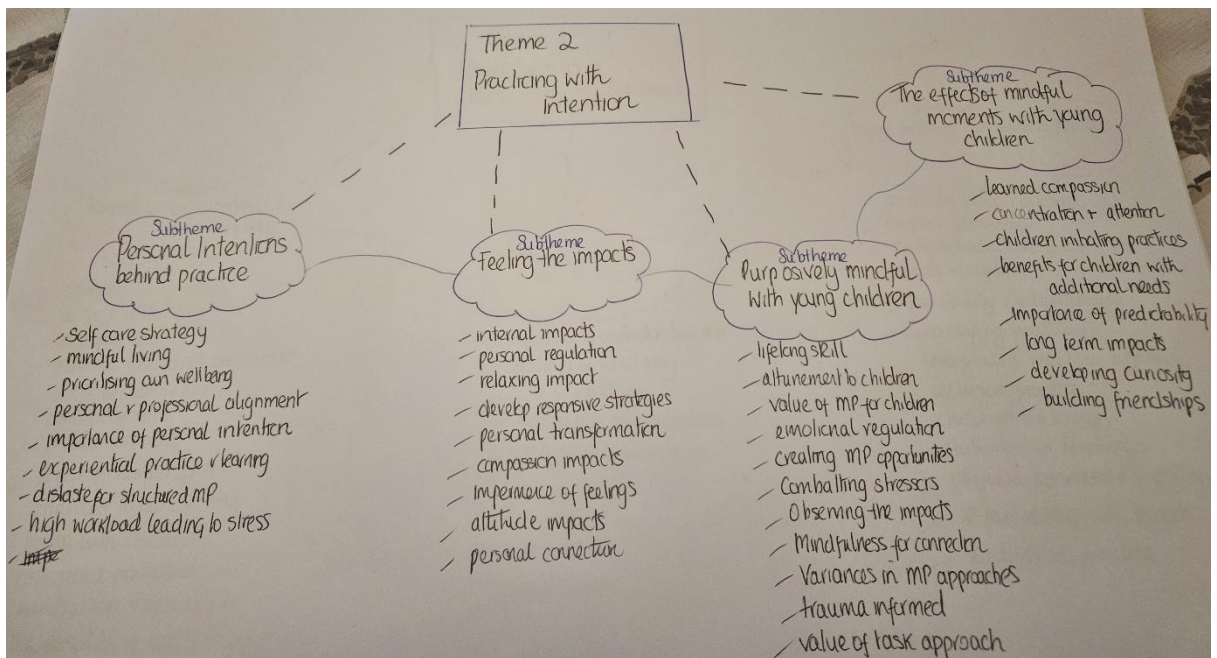 Theme 2
Practicing with
Intention
Subtheme
Personal Intentions
behind practice
- self care strategy
- mindful living
- prioritising own wellbeing
- personal v professional alignment
- importance of personal intention
- experiential practice v learning
- distaste for structured MP
- high workload leading to stress
Subtheme
Feeling the impacts
- internal impacts
- personal regulation
- relaxing impact
- develop responsive strategies
- personal transformation
- compassion impacts
- impermence of feelings
- attitude impacts
- personal connection
Subtheme
Purposively mindful
with young children
- lifelong skill
- attunement to children
- value of MP for children
- emotional regulation
- creating MP opportunities
- Combatting stressors
- Observing the impacts
- Mindfulness for connection
- Variances in MP approaches
- trauma informed
- value of task approach
Subtheme
The effects of mindful
moments with young
children
- learned compassion
- concentration + attention
- children imitating practices
- benefits for children with
additional needs
- importance of predictability
- long term impacts
- developing curiosity
- building friendships